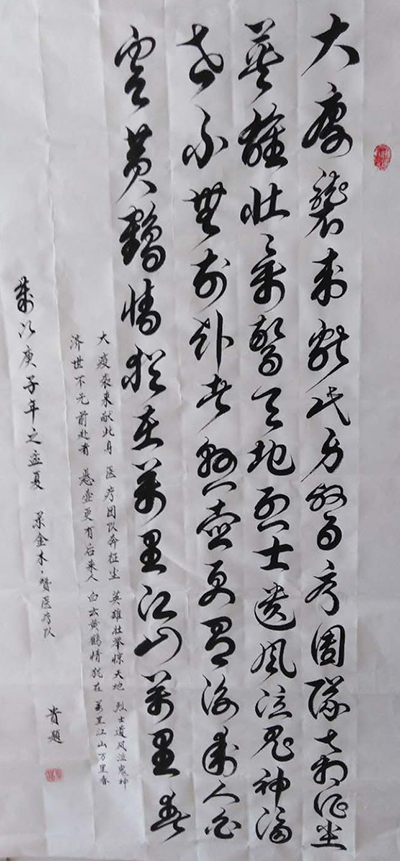 大疫袭来献此身医疗团队奔征尘
英雄壮举惊天地烈士遗风泣鬼神济
世不无前赴者悬壶更有后来人白
云黄鹤情犹在万里江山万里春
大疫袭来献此身 医疗团队奔征尘 英雄壮举惊天地 烈士遗风泣鬼神
济世不无前赴者 悬壶更有后来人 白云黄鹤情犹在 万里江山万里春
庚子年之孟夏 金木·赞医疗队 题